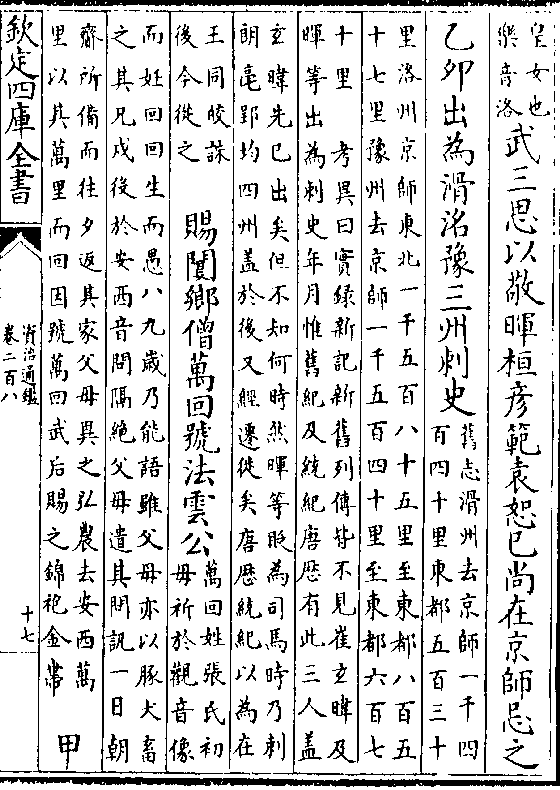 皇女也
樂音洛
武三思以敬暉桓彥範袁恕已尚在京師忌之
乙卯出為滑洺豫三州刺史
舊志滑州去京師一千四
百四十里東都五百三十
里洛州京師東北一千五百八十五里至東都八百五
十七里豫州去京師一千五百四十里至東都六百七
十里 考異曰實録新記新舊列傳皆不見崔玄暐及
暉等出為刺史年月惟舊紀及統紀唐歴有此三人蓋
玄暐先已出矣但不知何時然暉等貶為司馬時乃刺
朗亳郢均四州蓋於後又經遷徙矣唐歴統紀以為在
王同皎誅
後今從之
賜閿鄉僧萬回號法雲公
萬回姓張氏初
母祈於觀音像
而姙回回生而愚八九歳乃能語雖父母亦以豚犬畜
之其兄戍役於安西音問隔絶父母遣其問訊一日朝
齎所備而往夕返其家父母異之弘農去安西萬
里以其萬里而回因號萬回武后賜之錦袍金帶
甲
欽定四庫全書
資治通鑑
卷二百八
十七